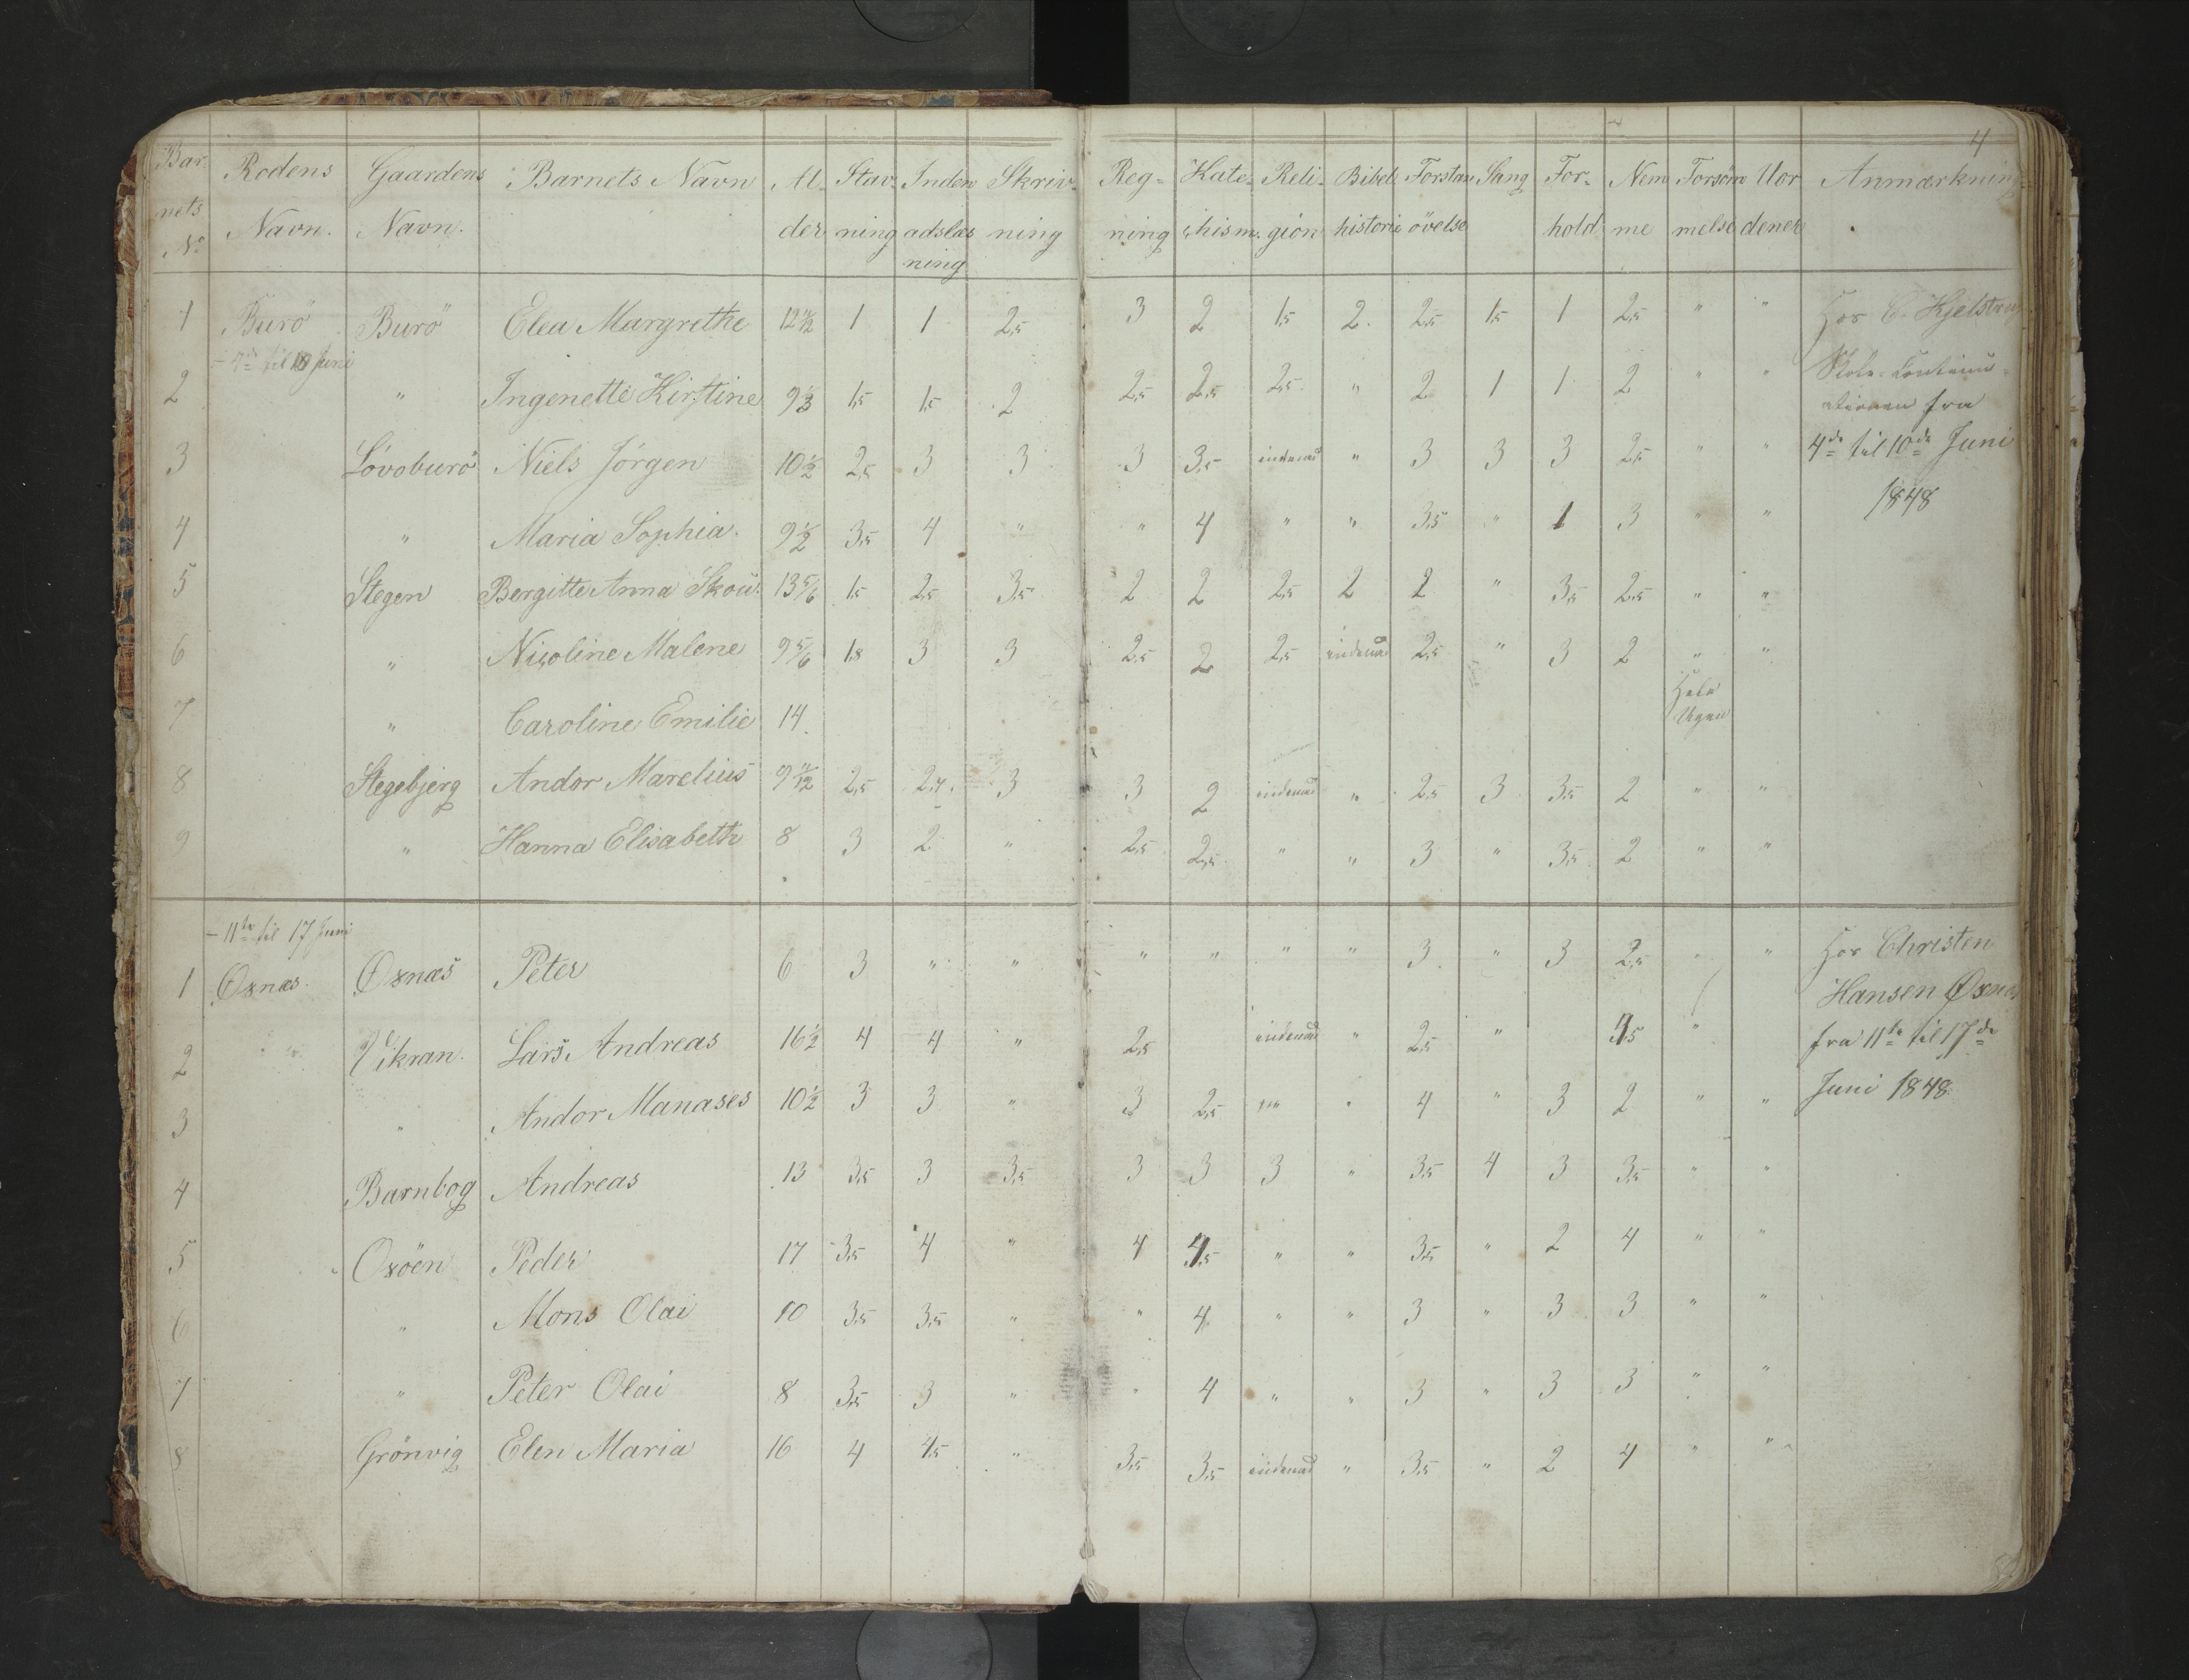 4
Bar- Rodens Gaardens Barnets Navn Al- Stav- Inden Skriv- Reg- Kate- Reli- Bibel Forstan Sang For- Nem Forsöm Uor Anmærkning
nets Navn. Navn. der ning adslæs ning ning chism. gion historie övelse hold me melse dener
No ning
1 Burö Burö Elea Margrethe 12 1 1 2,5 3 2 1,5 2. 2,5 1,5 1 2,5 " " Hos C. Hjelstrup
til 10 Juni
2 " Ingenette Kirstine 9 1,5 1,5 2 2,5 2,5 2,5 " 2 1 1 2 " " Skole-
fra
3 Lövoburö Niels Jörgen 10½ 2,5 3 3 3 3,5 indenad " 3 3 3 2,5 " " 4de til 10de Juni
1848
4 " Maria Sophia. 9½ 3,5 4 " " 4 " " 3,5 " 1 3 " "
5 Stegen Bergitte Anna Skou. 13 5/6 1,5 2,5 3,5 2 2 2,5 2 2 " 3,5 2,5 " "
6 " Nicoline Malene 9 5/6 1,8 3 3 2,5 2 2,5 indenad 2,5 " 3 2 " "
7 " Caroline Emilie 14. Hele
Ugen
8 Stegebjerg Andor Marelius 9 2,5 2,4. 3 3 2 indenad " 2,5 3 3,5 2 " "
9 " Hanna Elisabeth 8 3 2 " 2,5 2,5 " " 3 " 3,5 2 " "
- 11te til 17 Juni
1 Oxnæs. Øxnæs Peter 6 3 " " " " " " 3 " 3 2,5 " " Hos Christen
Hansen Øxnæs
2 Vikran. Lars Andreas 16½ 4 4 " 2,5 indenad " 2,5 " 4,5 " fra 11te til 17de
3 " Andor Manases 10½ 3 3 " 3 2,5 " " 4 " 3 2 " " Juni 1848.
4 Barnbog Andreas 13 3,5 3 3,5 3 3 3 " 3,5 4 3 3,5 " "
5 Oxöen Peder 17 3,5 4 " 4 4,5 " " 3,5 " 2 4 " "
6 " Mons Olai 10 3,5 3,5 " " 4 " " 3 " 3 3 " "
7 " Peter Olai 8 3,5 3 " " 4 " " 3 " 3 3 " "
8 Grönvig Elen Maria 16 4 4,5 " 3,5 3,5 indenad " 3,5 " 2 4 " "